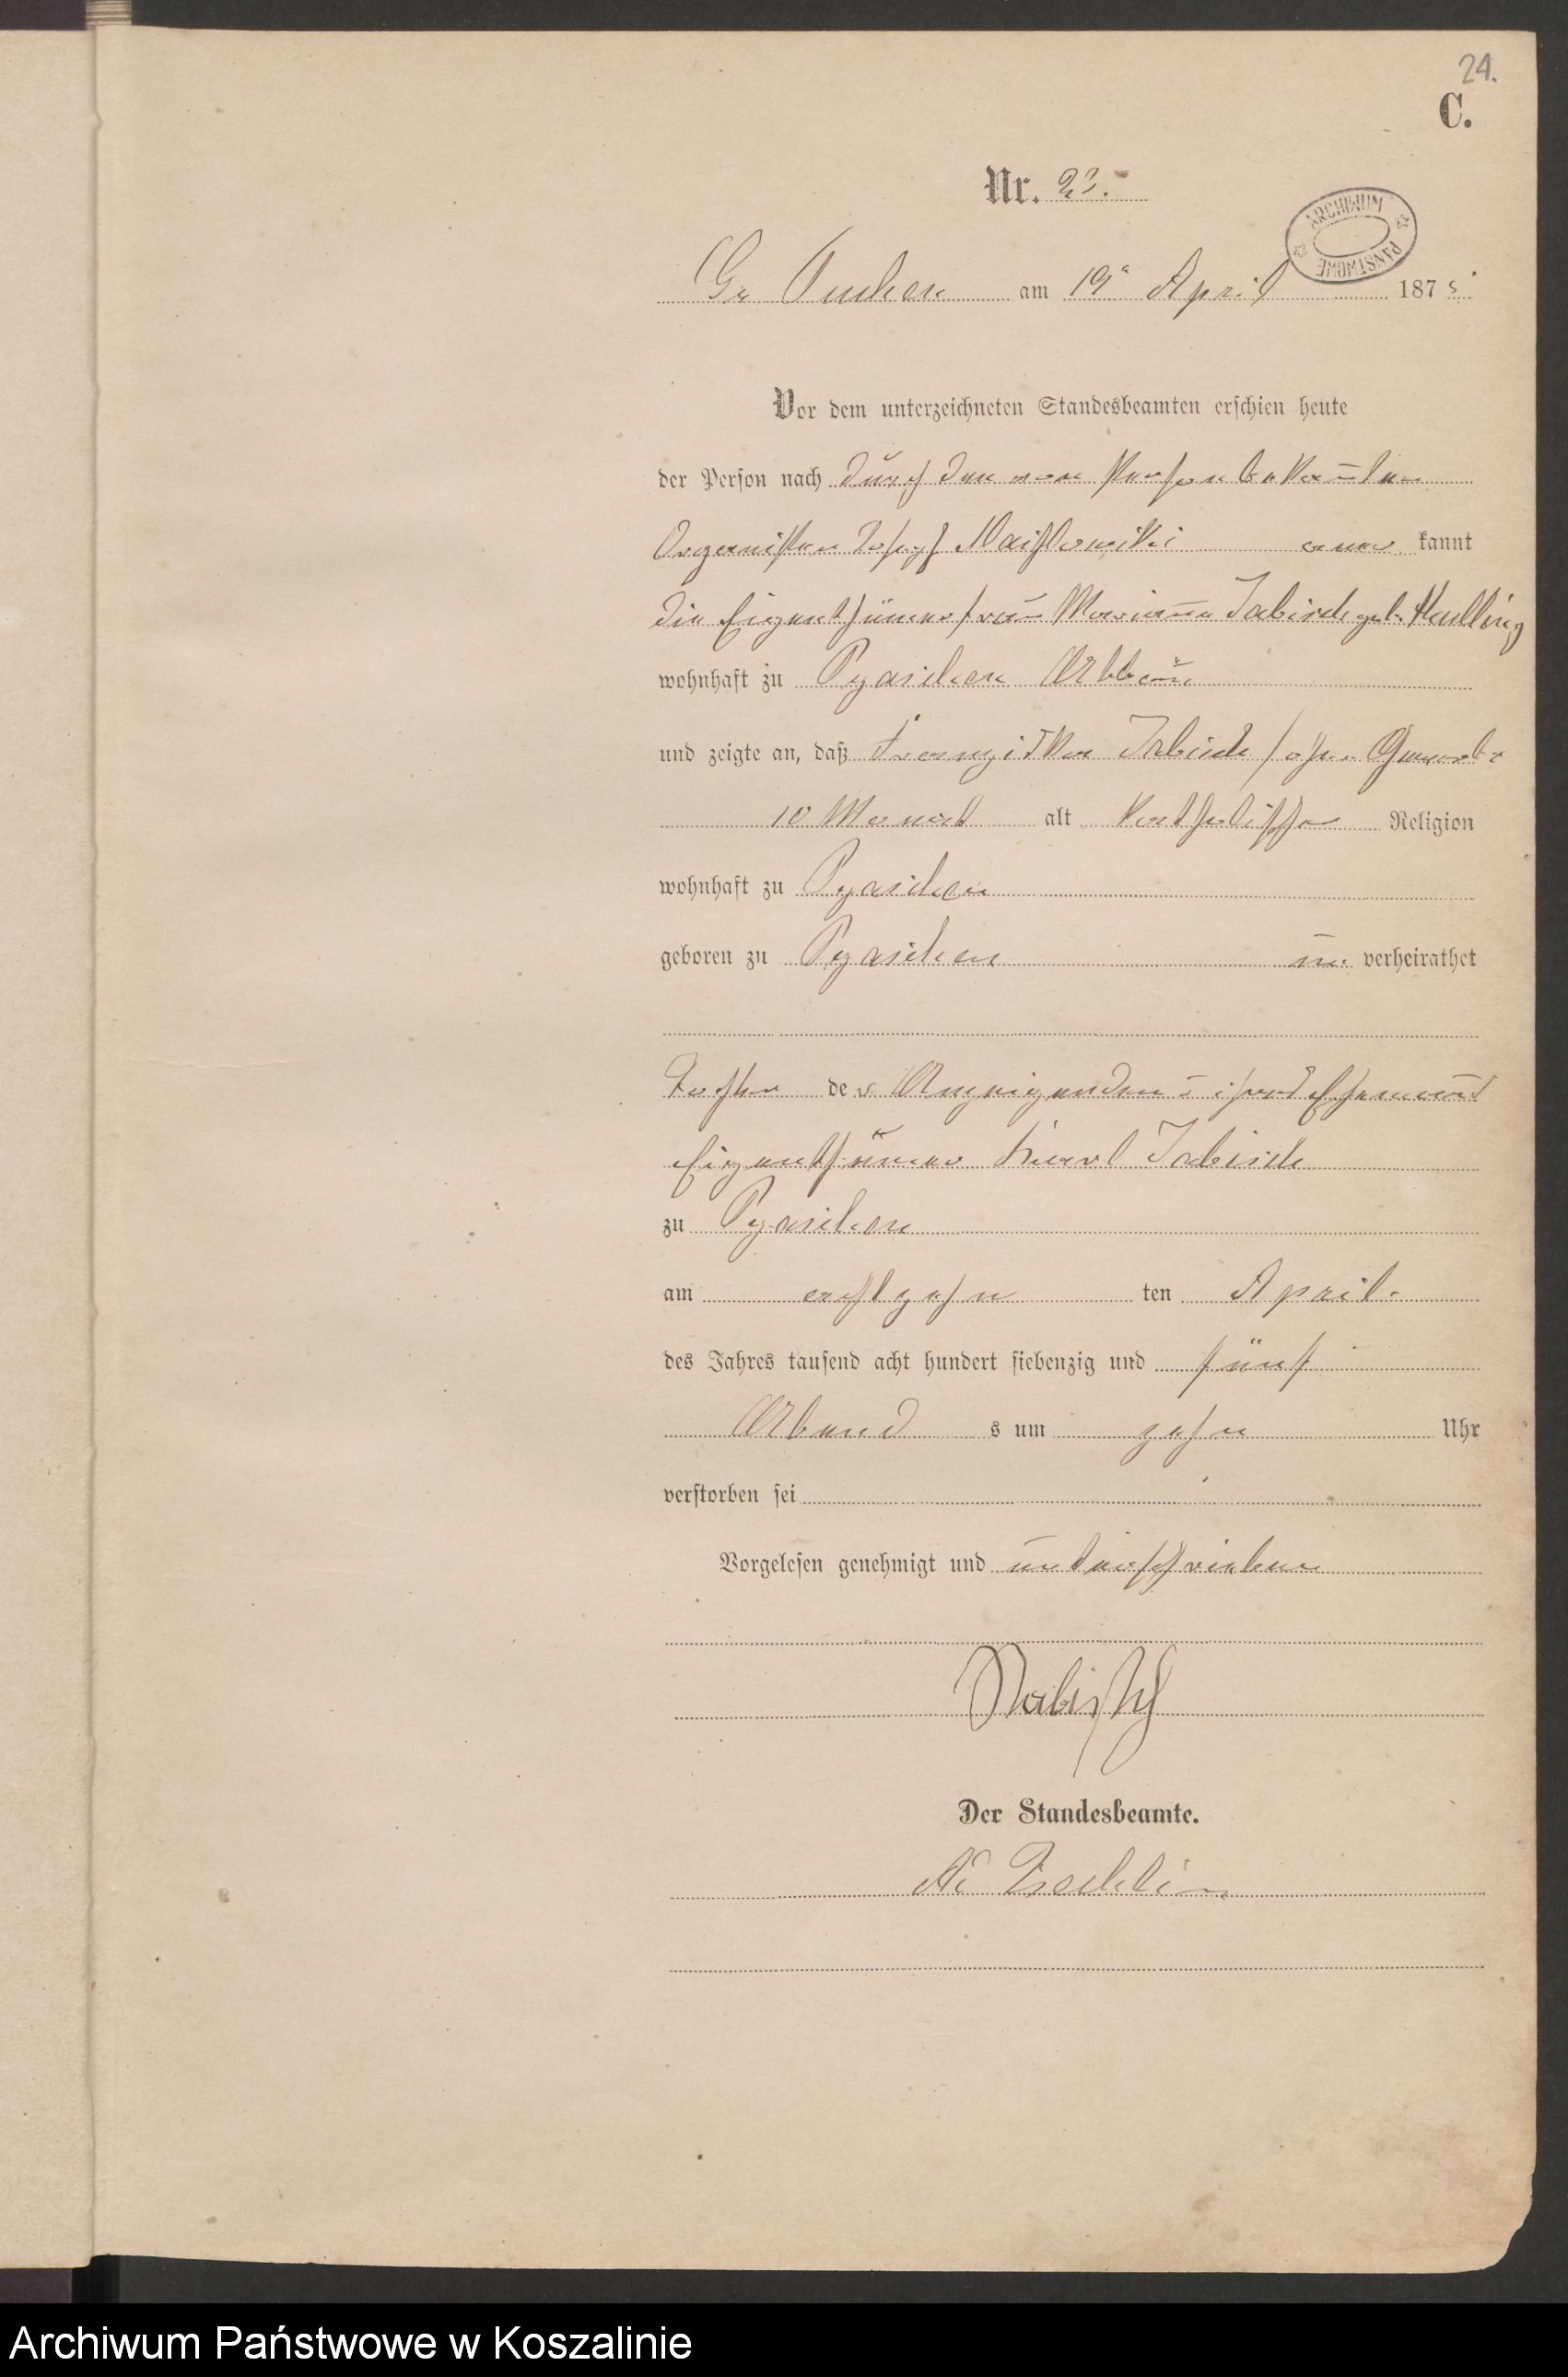 24.
C.
Nr. 23.
ARCHIWUM PAŃSTWOWE
Gr am 19ᵗ April 1875
Vor dem unterzeichneten Standesbeamten erschien heute
der Person nach durch den von Person bekannten
Organisten Josef aner kannt
die Eigenthümerfrau Marianna Jabisch geb.
wohnhaft zu Pyaschen Abbau
und zeigte an, daß Franziska Jabisch, ohne Gewerbe
10 Monat alt katholischer Religion
wohnhaft zu Pyaschen
geboren zu Pyaschen un verheirathet
Tochter der Anzeigenden u ihres Ehemann
Eigenthümer Karl Jabisch
zu Pyaschen
am achtzehn ten April
des Jahres tausend acht hundert siebenzig und fünf
Abend s um zehn Uhr
verstorben sei
Vorgelesen genehmigt und unterschrieben
Der Standesbeamte.
Archiwum Państwowe w Koszalinie